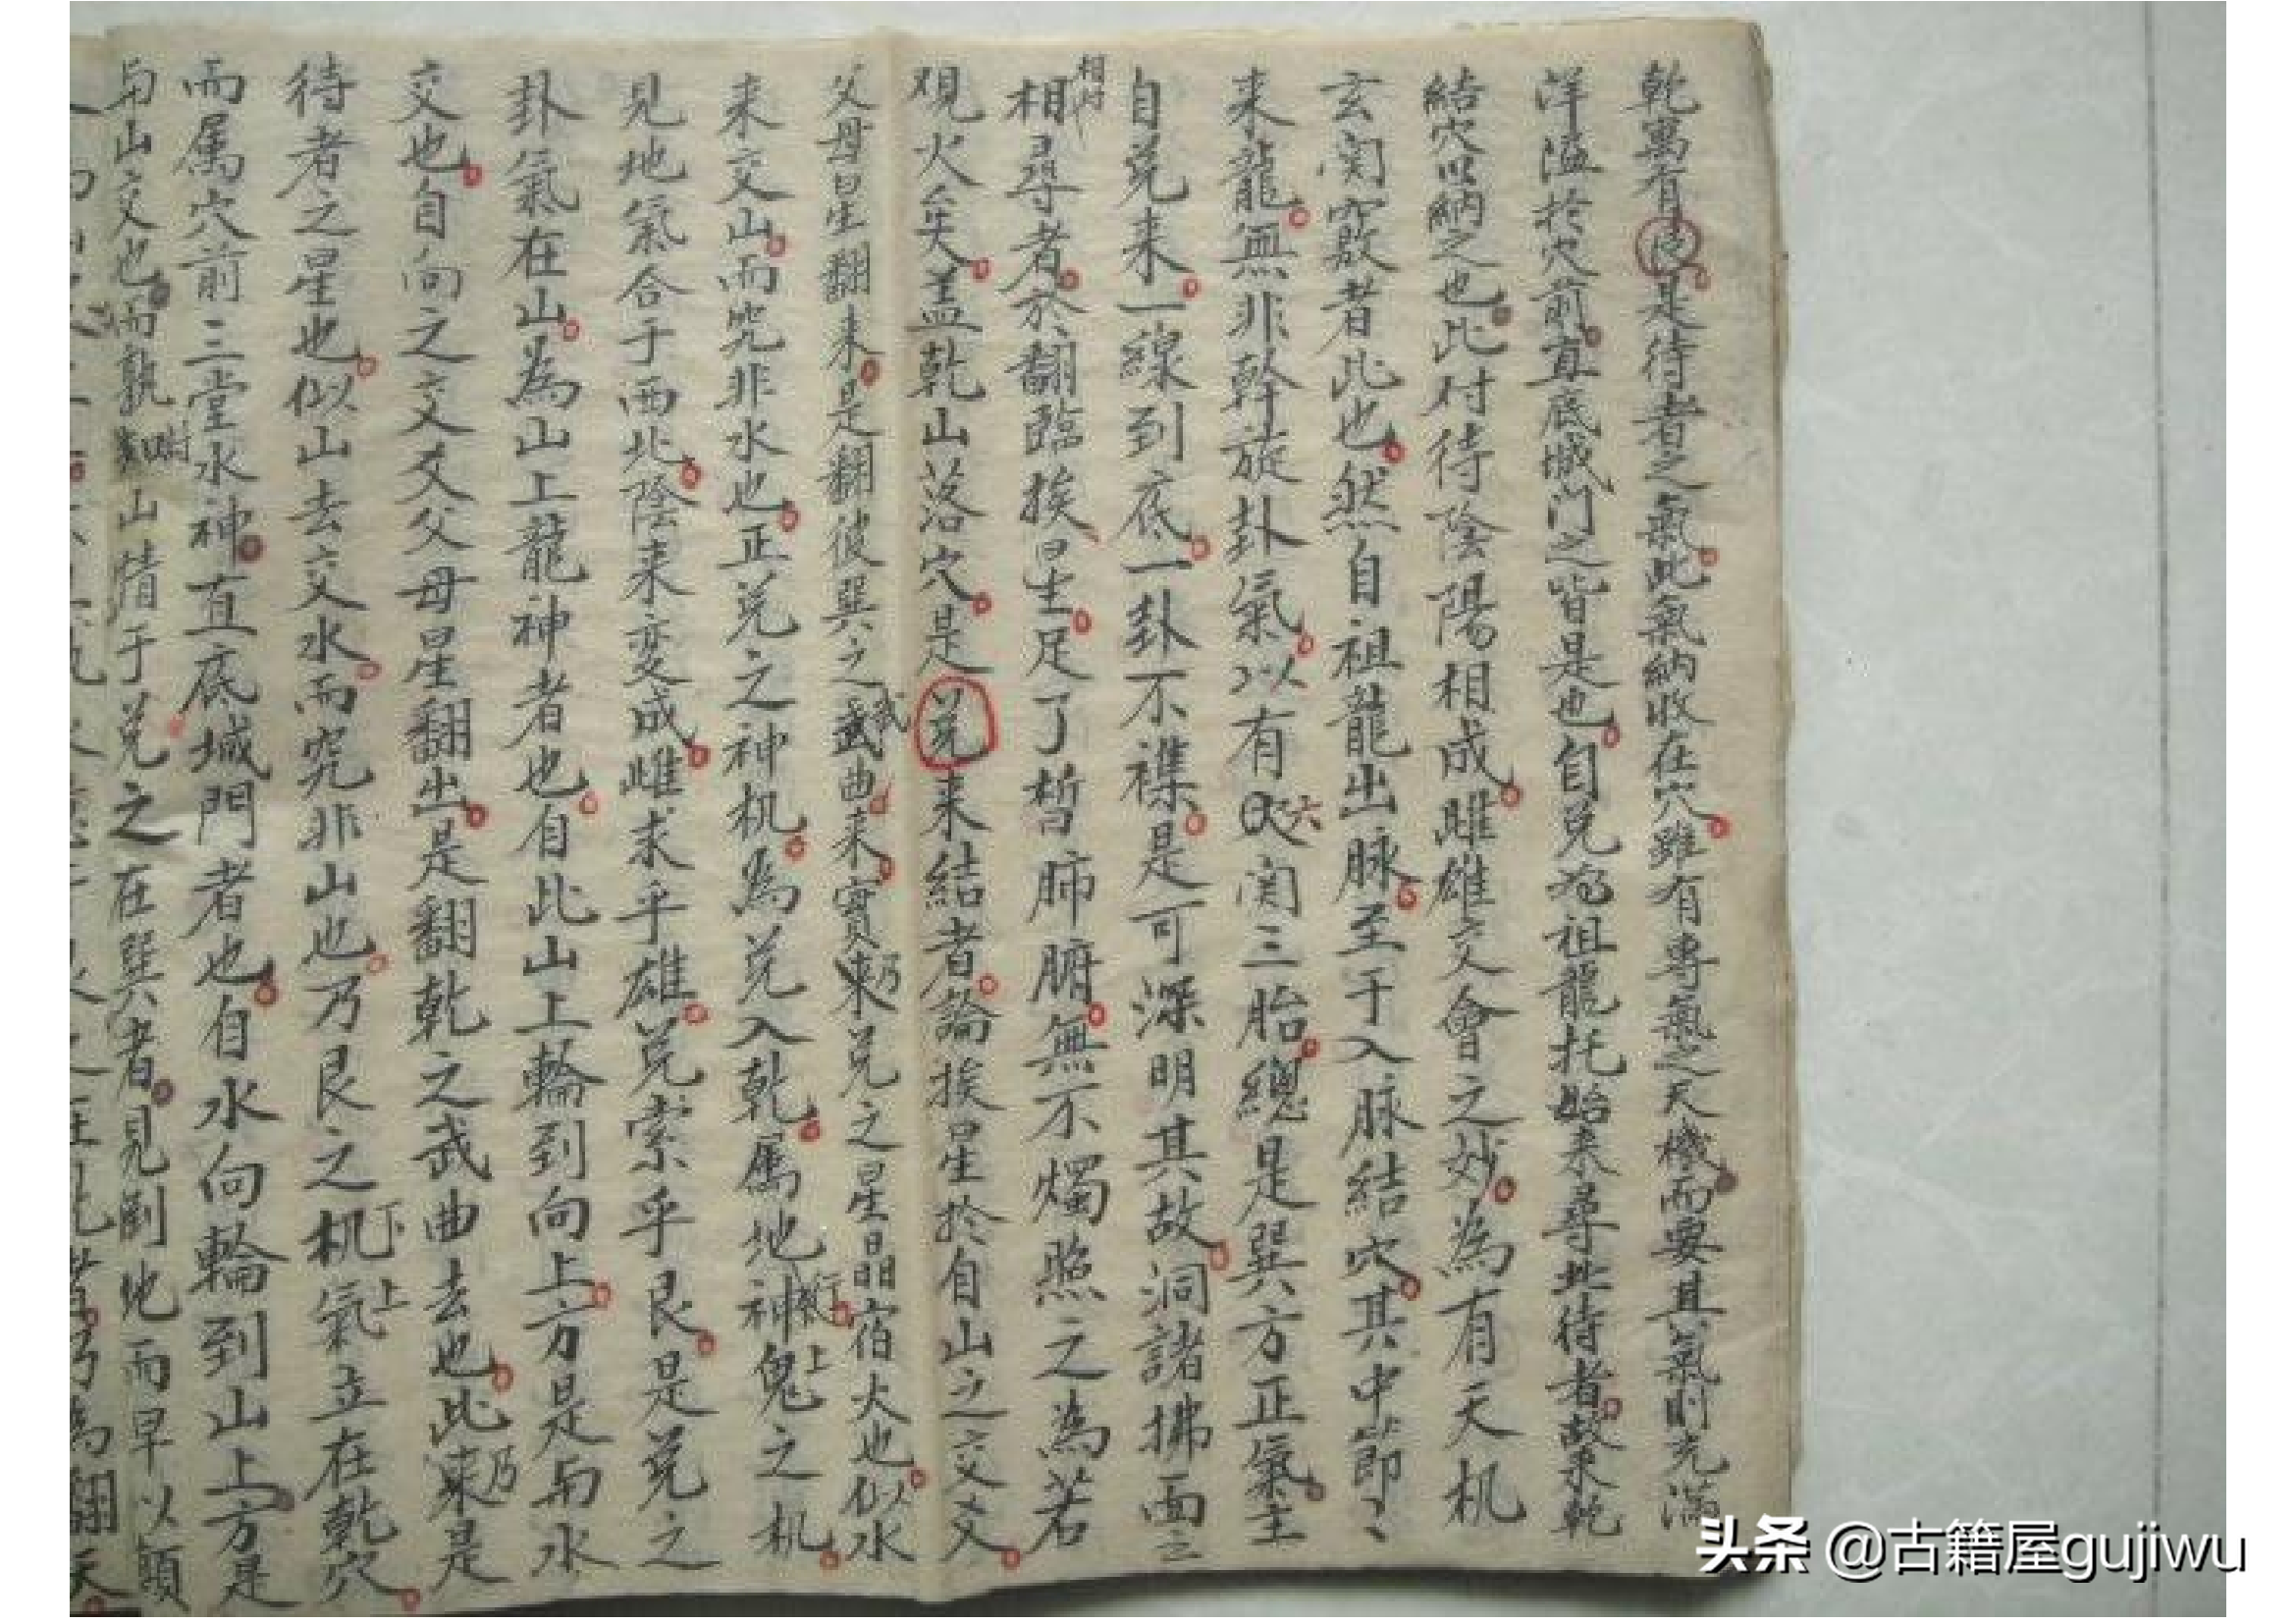 乾寓有 是待者之氣此氣納收在穴雖有專氣之天機而要其氣時充滿
洋溢於穴前直底城门之皆是也自兑为祖龍托始来尋此待者故来乾
結穴以納之也此对待陰陽相成雌雄交會之妙為有天机
玄関竅者此也然自祖龍出脉至于入脉結穴其中節〻
来龍無非斡旋卦氣以有六関三胎總是巽方正氣主
自兑来一線到底一卦不襍是可深明其故洞諸拂面〻
相对
相尋者於翻臨挨星足了皙肺腑無不燭照之為若
观火矣盖乾山落穴是兑来結者論挨星於自山之交爻
父母星翻来是翻彼巽之武曲来實乃兑之星晶宿火也似水
来交山而究非水也正兑之神机為兑入乾属地神 上鬼之机
見地氣合于西北陰来变成雌求乎雄兑索乎艮是兑之
卦氣在山為山上龍神者也自此山上輪到向上方是而水
交也自向之交爻父母星翻出是翻乾之武曲去也此乃是
待者之星也似山去交水而究非山也乃艮之机下氣上立在乾穴
而属穴前三堂水神直底城門者也自水向輪到山上方是
与山交也而孰 山情于兑之在巽者見剛也而早以顛
头条 @古籍屋gujiwu